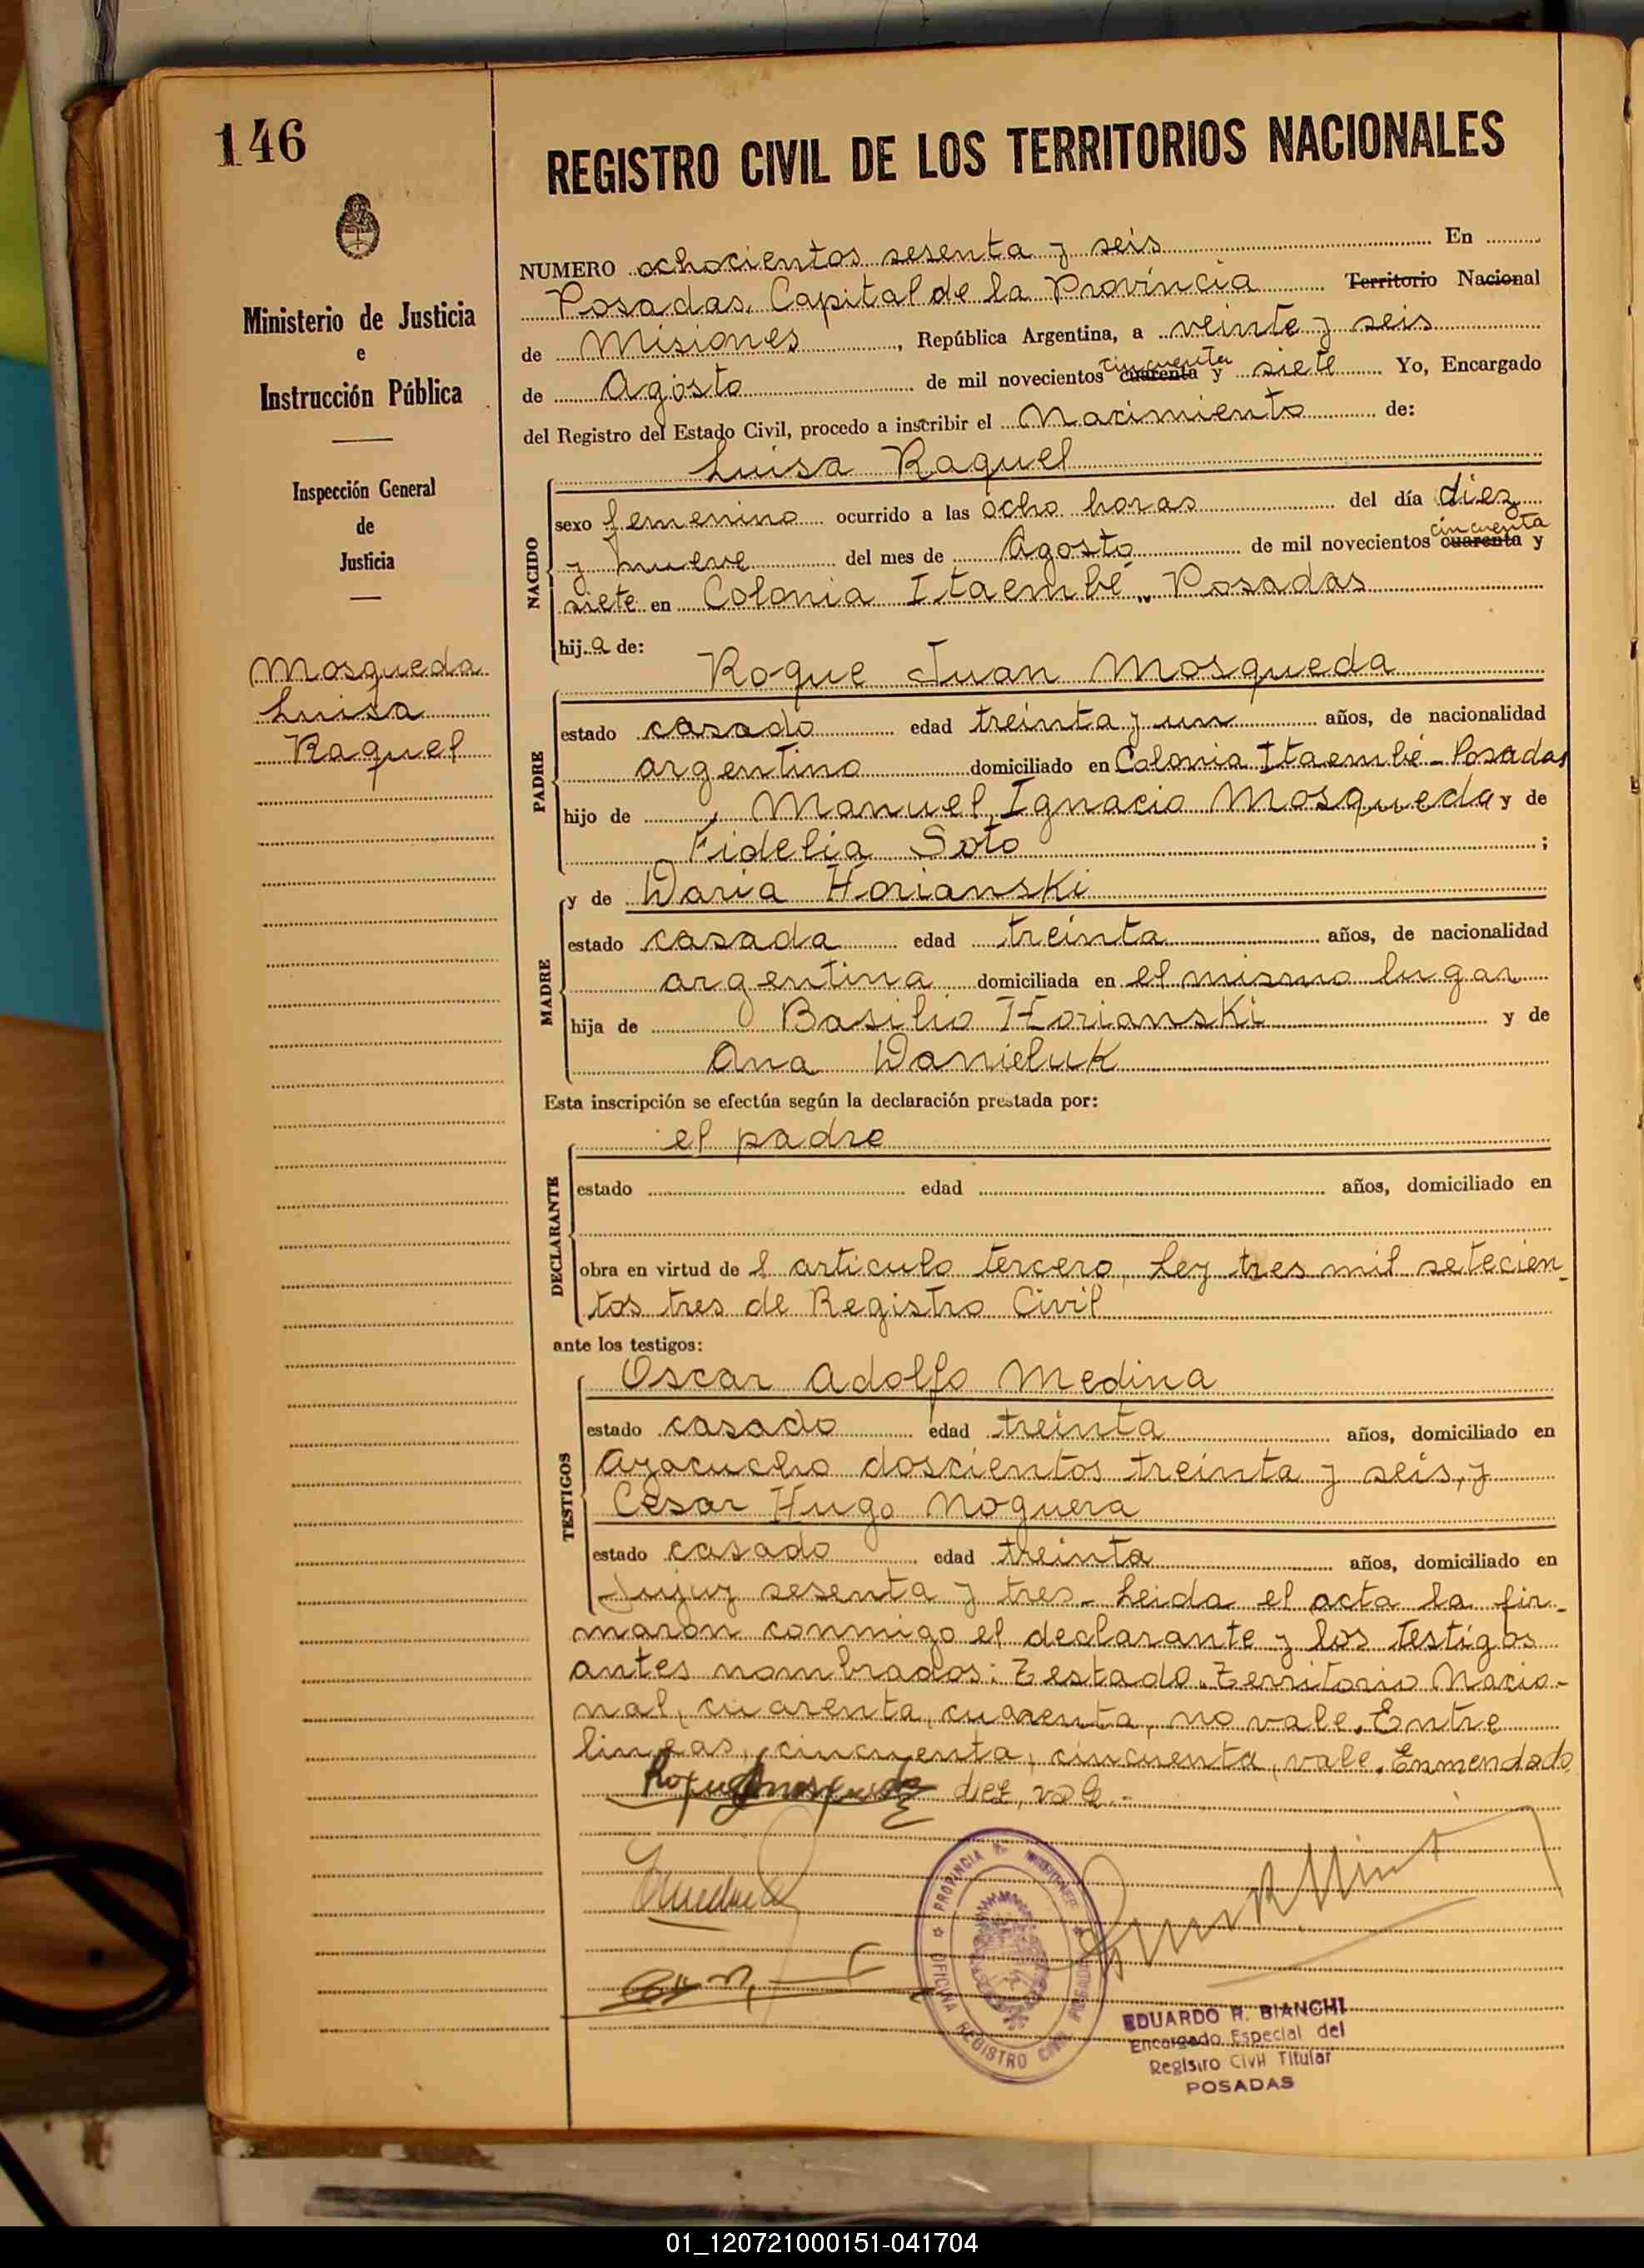 146
Ministerio de Justicia
e
Instrucción Pública
Inspección General
de
Justicia
Mosqueda
Luisa
Raquel
REGISTRO CIVIL DE LOS TERRITORIOS NACIONALES
NUMERO ochocientos sesenta y seis En
Posadas, Capital de la Provincia Territorio Nacional
de Misiones, República Argentina, a veinte y seis
de Agosto de mil novecientos cincuenta cuarenta y siete Yo, Encargado
del Registro del Estado Civil, procedo a inscribir el Nacimiento de:
Luisa Raquel
NACIDO
sexo femenino ocurrido a las ocho horas del día diez
y nueve del mes de Agosto de mil novecientos cincuenta cuarenta y
siete en Colonia Itaembé „ Posadas
hija de:
Roque Juan Mosqueda
PADRE
estado casado edad treinta y un años, de nacionalidad
argentino domiciliado en Colonia Itaembé - Posadas
hijo de Manuel Ignacio Mosqueda y de
Fidelia Soto ;
y de Daria Horianski
MADRE
estado casada edad treinta años, de nacionalidad
argentina domiciliada en el mismo lugar
hija de Basilio Horianski y de
Ana Danieluk
Esta inscripción se efectúa según la declaración prestada por:
el padre
DECLARANTE
estado edad años, domiciliado en
obra en virtud de l articulo tercero, Ley tres mil setecien-
tos tres de Registro Civil
ante los testigos:
Oscar Adolfo Medina
TESTIGOS
estado casado edad treinta años, domiciliado en
Ayacucho doscientos treinta y seis, y
Cesar Hugo Noguera
estado casado edad treinta años, domiciliado en
Jujuy sesenta y tres - Leida el acta la fir-
maron conmigo el declarante y los testigos
antes nombrados: Testado. Territorio Nacio-
nal, cuarenta, cuarenta, no vale. Entre
lineas, cincuenta, cincuenta, vale. Enmendado
diez, vale.-
PROVINCIA DE MISIONES
OFICINA REGISTRO CIVIL POSADAS
EDUARDO R. BIANCHI
Encargado Especial del
Registro Civil Titular
POSADAS
01_120721000151-041704